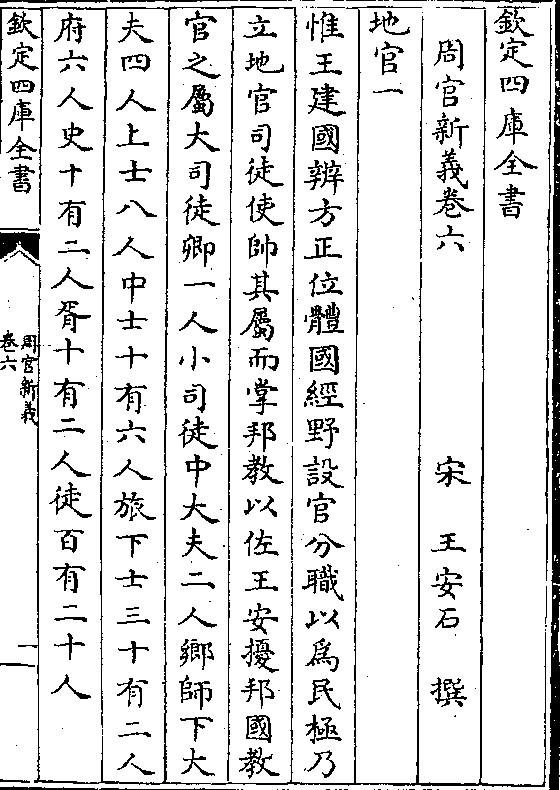 欽定四庫全書
周官新義卷六　宋　王安石　撰
地官一
惟王建國辨方正位體國經野設官分職以為民極乃
立地官司徒使帥其屬而掌邦教以佐王安擾邦國教
官之屬大司徒卿一人小司徒中大夫二人鄉師下大
夫四人上士八人中士十有六人旅下士三十有二人
府六人史十有二人胥十有二人徒百有二十人
欽定四庫全書
周官新義
卷六
一